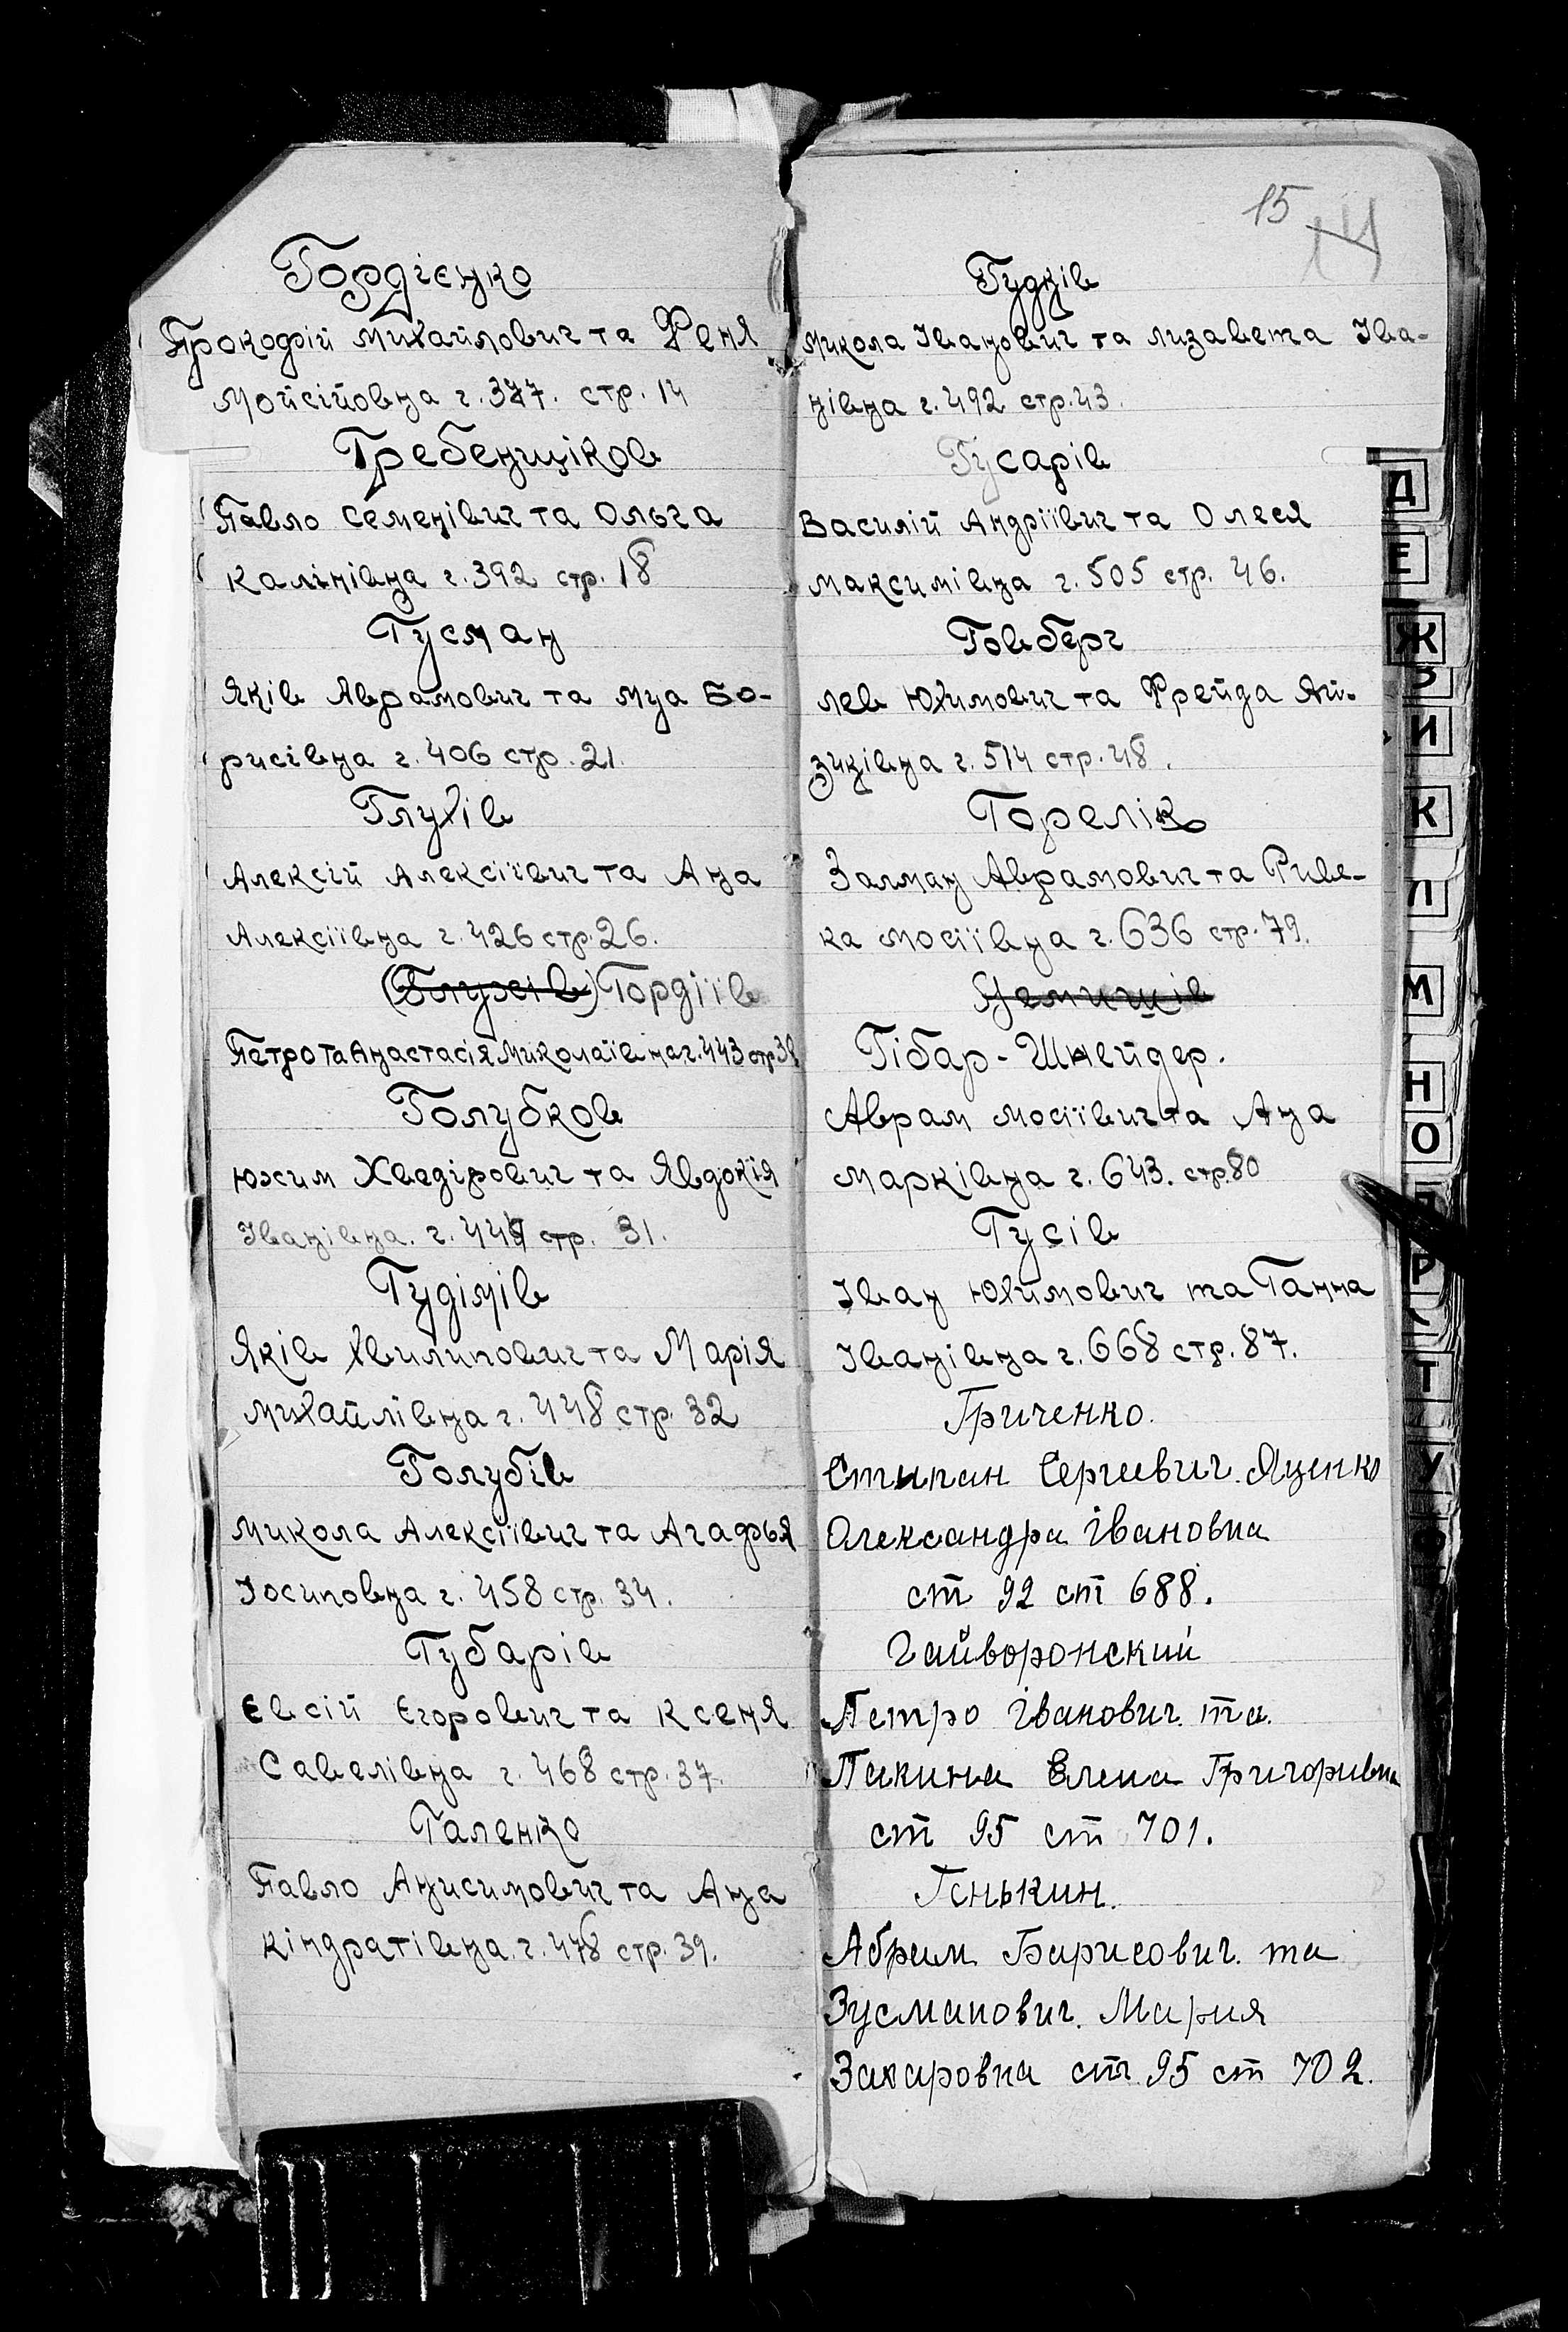 Гордієнко
Прокофій Михайлович та Феня
Мойсійовна г. 377. стр. 14
Гребенщіков
Павло Семенівич та Ольга
Калінівна г. 392 стр. 18
Гусман
Яків Аврамович та Муа Бо-
рисівна г. 406 стр. 21.
Глухів
Алексій Алексіївич та Ана
Алексіївна г. 426 стр. 26.
(Глухів) Гордіїв
Петро та Анастасія Миколаївна г. 443 стр
Голубков
Юхим Хведірович та Явдокія
Іванівна. г. стр. 31.
Гудімів
Яків Хвилипович та Марія
Михайлівна г. 448 стр. 32
Голубів
Микола Алексіївич та Агафья
Іосиповна г. 458 стр. 34.
Губарів
Євсій Єгорович та Ксеня
Савелівна г. 468 стр. 37.
Галенко
Павло Анисимович та Ана
Кіндратівна. г. 478 стр. 39.
15
14
Гудків
Микола Іванович та Лизавета Іва-
нівна г. 492 стр. 43.
Гусарів
Василій Андріївич та Олеся
Максимівна г. 505 стр. 46.
Говберг
Лев Юхимович та Фрейда Ай-
зиківна г. 514 стр. 48.
Горелік
Залман Аврамович та Риве-
ка Мосіївна г. 636 стр. 79.
Гібар-Шнейдер.
Аврам Мосіївич та Ана
Марківна г. 643. стр. 80
Гусів
Іван Юхимович та Ганна
Іванівна г. 668 стр. 87.
Гриченко.
Степан Сергеевич. Яценко
Олександра Івановна
ст 92 ст 688.
Гайворонский
Петро Іванович. та.
Пакина Елена Григоривна
ст 95 ст 701.
Генькин.
Абрам Барисович. та
Зусманович. Мария
Захаровна ст. 95 ст 702.
Д
Е
Ж
З
И
К
Л
М
Н
О
П
Р
Т
У